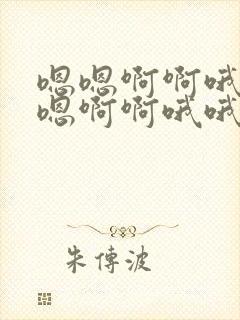 嗯嗯啊啊哦
嗯啊啊哦哦
朱傳波